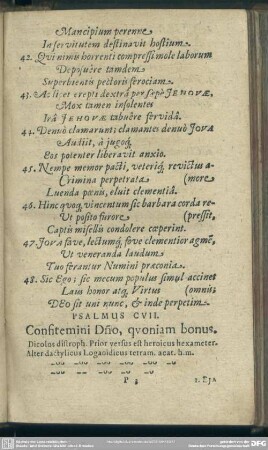 Mancipium perenne
In servitutem destinavit hostium.
42. Qui nimis horrenti compressi mole laborum
Deposuêre tandem
Superbientis pectoris ferociam.
43. Ast et erepti dextrâ persæpè JEHOVÆ,
Mox tamen insolentes
Irâ JEHOVÆ tabuêre fervidâ.
44. Denuò clamarunt; clamantes denuò JOVA
Audiit, à jugoq́;
Eos potenter liberavit anxio.
45. Nempe memor pacti, veterisq́; revictus a-
Crimina perpetrata (more
Luenda pœnis, eluit clementiâ.
46. Hinc quoq; vincentum sic barbara corda re-
Ut posito furore (pressit,
Captis misellis condolere cœperint.
47. JOVA fave, lectumq́; fove clementior agmẽ,
Ut veneranda laudum
Tuo ferantur Numini præconia.
48. Sic Ego; sic mecum populus simul accinet
Laus honor atq; Virtus (omnis;
DEo sit uni nunc, & inde perpetim.
PSALMUS CVII.
Confitemini Dño, qvoniam bonus.
Dicolos distroph. Prior versus est heroicus hexameter.
Alter dactylicus Logaoidicus tetram. acat. h.m.
P 4 1. EJA